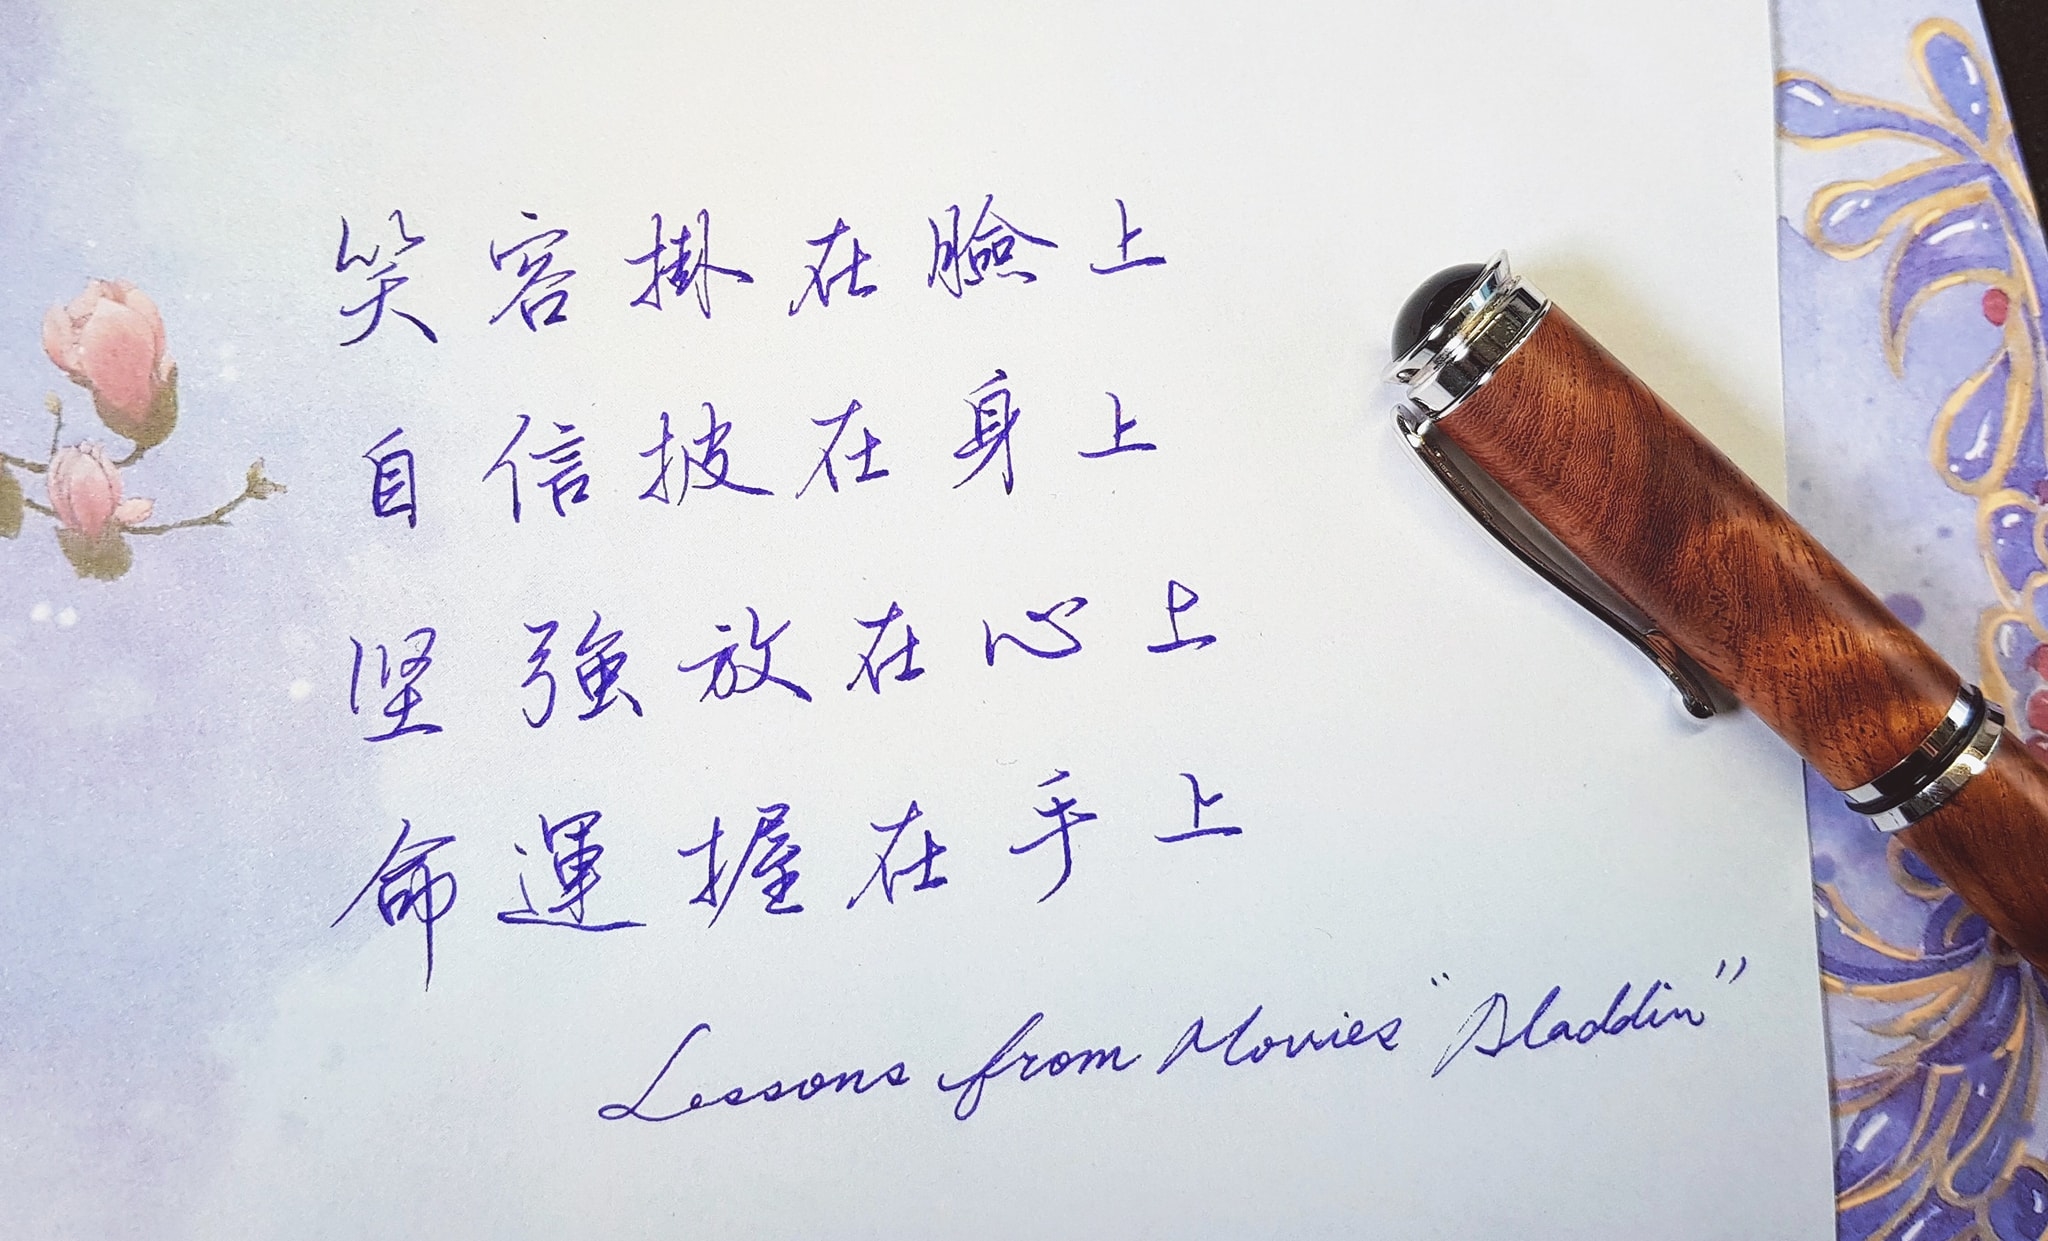 笑容掛在臉上
自信披在身上
坚強放在心上
命運握在手上
Lessons from Movies "Aladdin"